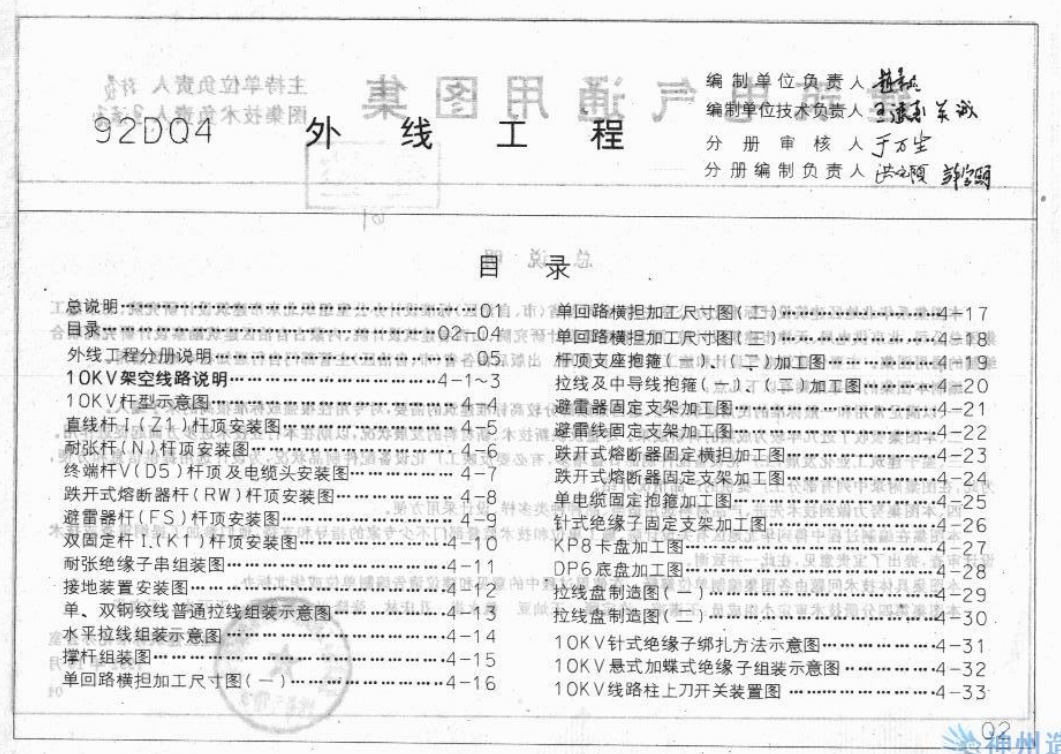 编制单位负责人
编制单位技术负责人
92DQ4 外线工程
分册审核人 于万生
分册编制负责人
目 录
总说明………01
目录………02-04
外线工程分册说明………05
10KV架空线路说明………4-1~3
10KV杆型示意图………4-4
直线杆I(Z1)杆顶安装图………4-5
耐张杆(N)杆顶安装图………4-6
终端杆V(D5)杆顶及电缆头安装图………4-7
跌开式熔断器杆(RW)杆顶安装图………4-8
避雷器杆(FS)杆顶安装图………4-9
双固定杆I.(K1)杆顶安装图………4-10
耐张绝缘子串组装图………4-11
接地装置安装图………4-12
单、双钢绞线普通拉线组装示意图………4-13
水平拉线组装示意图………4-14
撑杆组装图………4-15
单回路横担加工尺寸图(一)………4-16
单回路横担加工尺寸图(二)………4-17
单回路横担加工尺寸图(三)………4-18
杆顶支座抱箍(一)、(二)加工图………4-19
拉线及中导线抱箍(一)、(二)加工图………4-20
避雷器固定支架加工图………4-21
避雷线固定支架加工图………4-22
跌开式熔断器固定横担加工图………4-23
跌开式熔断器固定支架加工图………4-24
单电缆固定抱箍加工图………4-25
针式绝缘子固定支架加工图………4-26
KP8卡盘加工图………4-27
DP6底盘加工图………4-28
拉线盘制造图(一)………4-29
拉线盘制造图(二)………4-30
10KV针式绝缘子绑扎方法示意图………4-31
10KV悬式加蝶式绝缘子组装示意图………4-32
10KV线路柱上刀开关装置图………4-33
02
神州